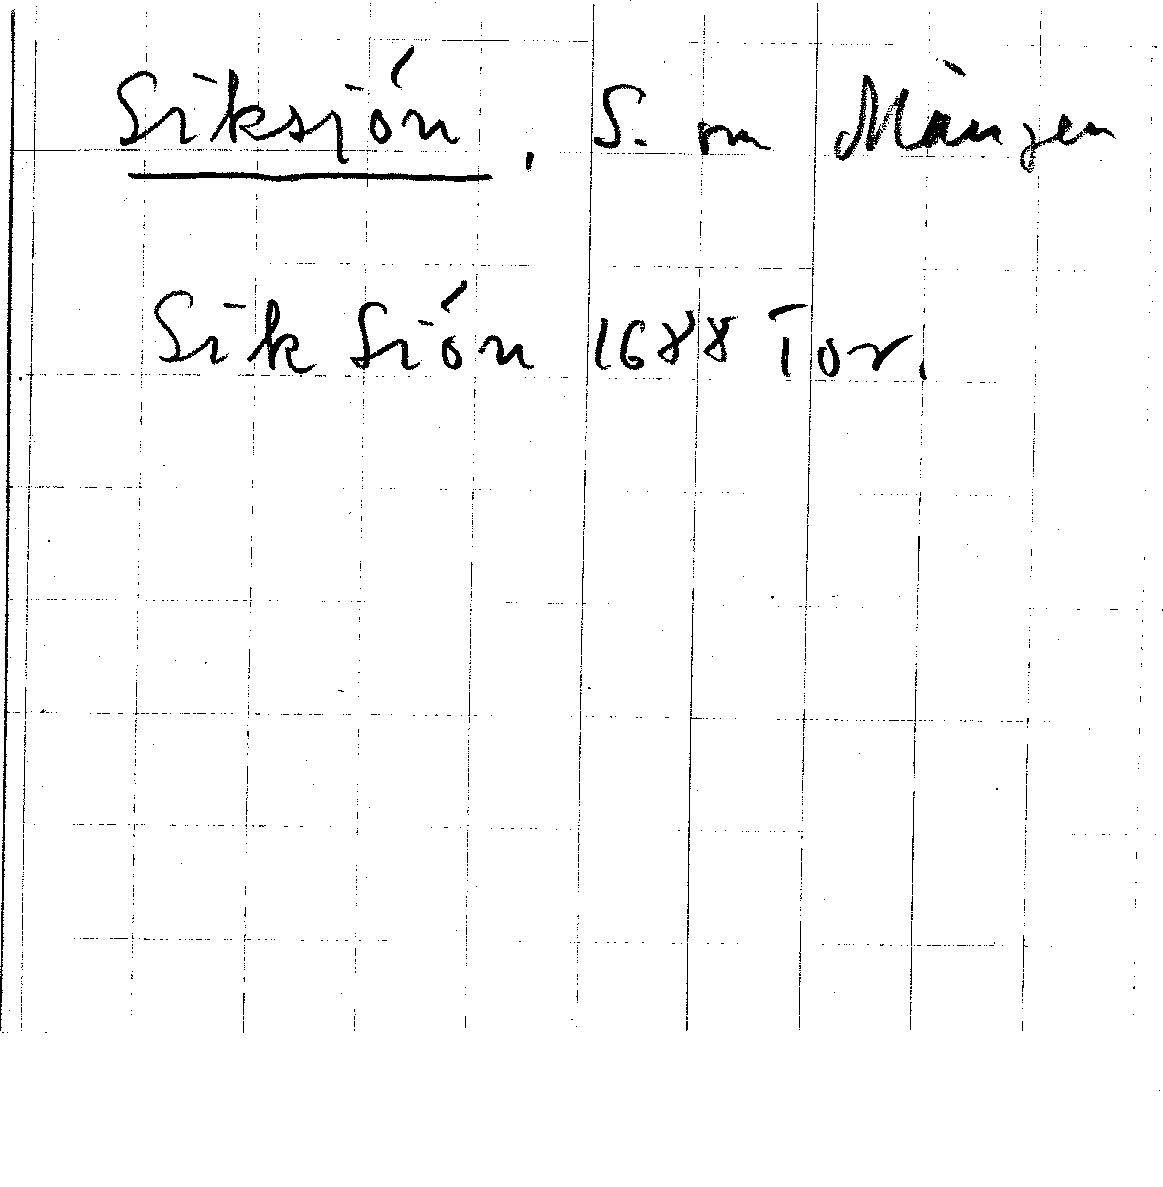 Siksjön, S. om Mången
Sik Siön 1688 Tor.